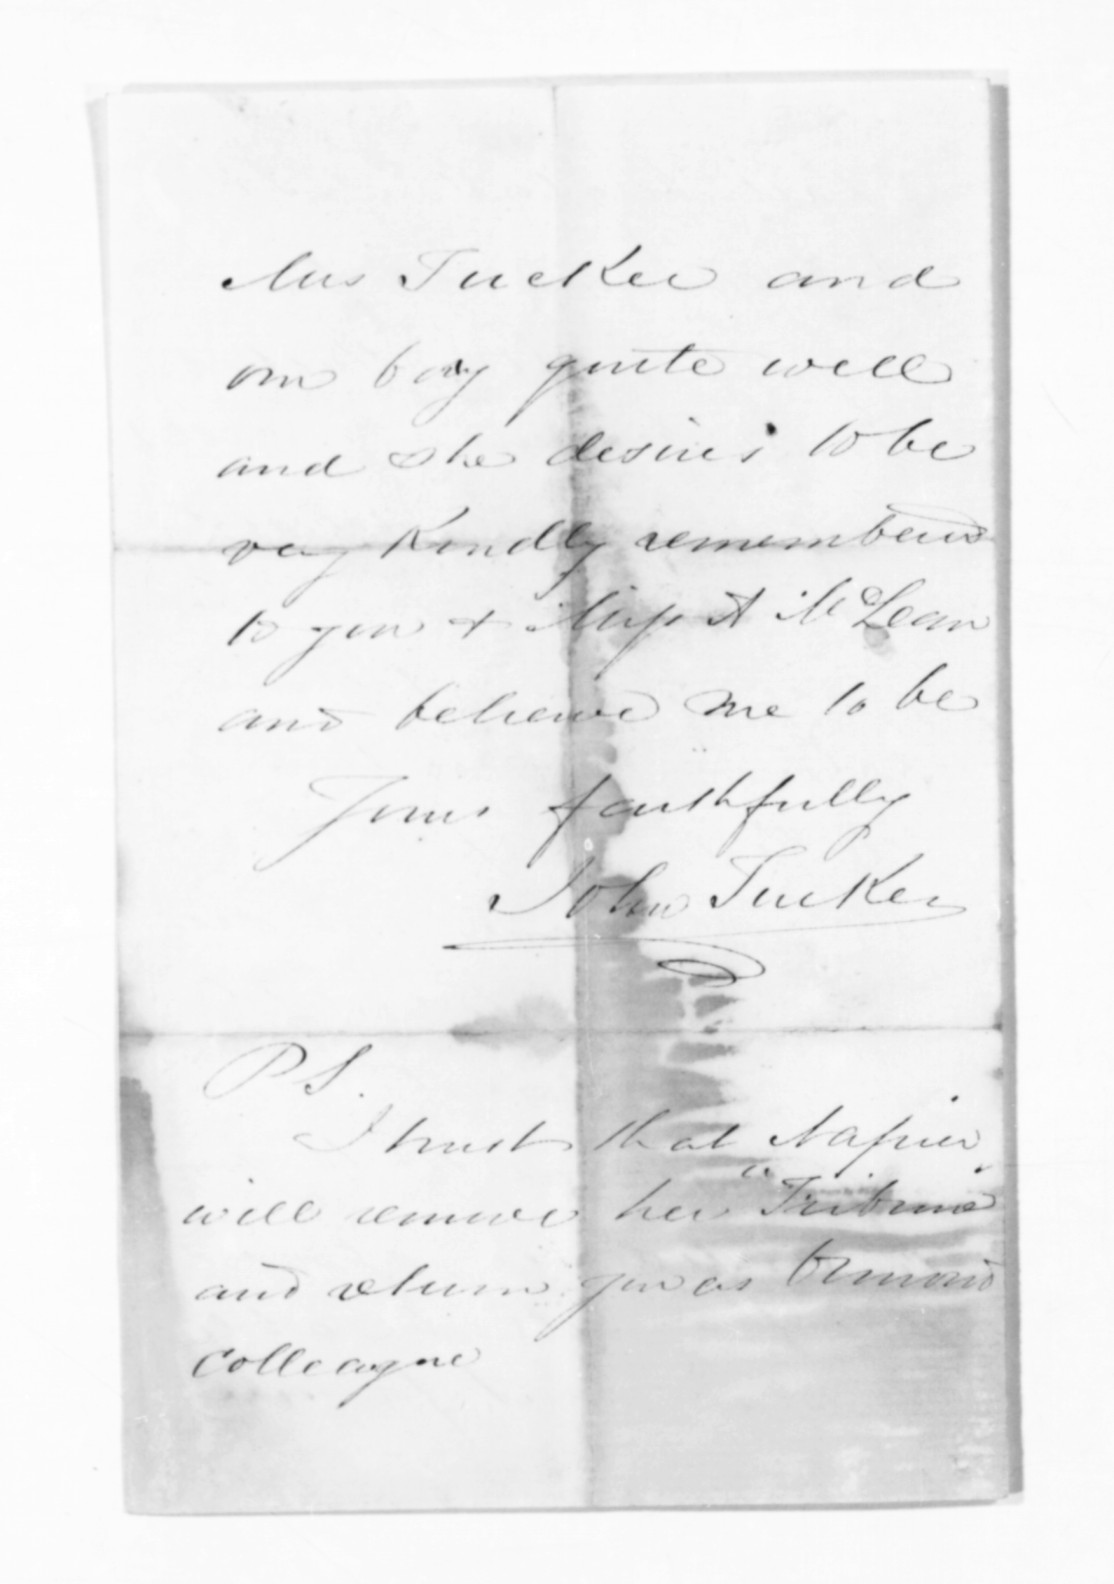 Mrs Tucker and
our boy quite well
and she desires to be
very kindly remembered
to you & Miss A McLean
and believe me to be
Yours faithfully
John Tucker
P S.
I trust that Napier
will remove her "Tribune"
and return you as Ormond's
Colleague